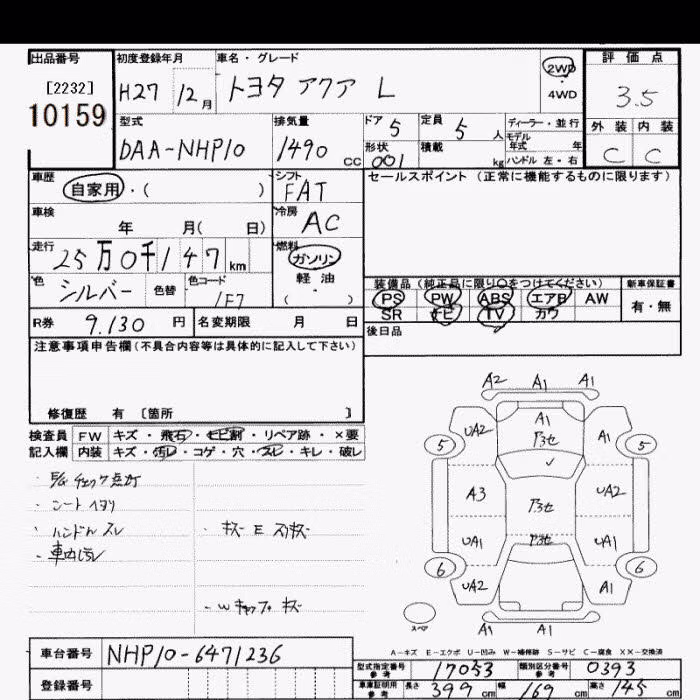 出品番号 初度登録年月 車名・グレード 評価点
[2232] H27 12月 トヨタ アクア L 2WD 4WD 3.5
10159
外装 内装
C C
型式 排気量 ドア 定員 ディーラー・並行
DAA-NHP10 1490 CC 5 5 人 モデル年式 年
形状 積載 ハンドル 左・右
001 kg
車歴 シフト セールスポイント (正常に機能するものに限ります)
自家用・( ) FAT
車検 冷房
年 月( 日) AC
走行 燃料
25万0千147km ガソリン
色 色替 色コード 軽油
シルバー 1F7 ( )
装備品(純正品に限り○をつけてください) 新車保証書
PS PW ABS エアB AW 有・無
SR ナビ TV カワ
R券 9.130 円 名変期限 月 日
後日品
注意事項申告欄(不具合内容等は具体的に記入して下さい)
修復歴 有 [箇所 ]
検査員 FW キズ・飛石・ヒビ割・リペア跡・×要
記入欄 内装 キズ・汚レ・コゲ・穴・スレ・キレ・破レ
A2 A1 A1
UA2 A1 A1
5 アラセ 5
A3 アラセ UA2
UA1 アラセ UA1
6 6
UA2 A1
A1 A1
スペア
・シートヨゴレ
・ハンドルスレ
・Wキャップキズ
A-キズ E-エクボ U-凹み W-補修跡 S-サビ C-腐食 XX-交換済
車台番号 NHP10-6471236
型式指定番号 参考 17053 類別区分番号 参考 0393
登録番号
車庫証明用 参考 長さ 399 cm 幅 169 cm 高さ 145 cm